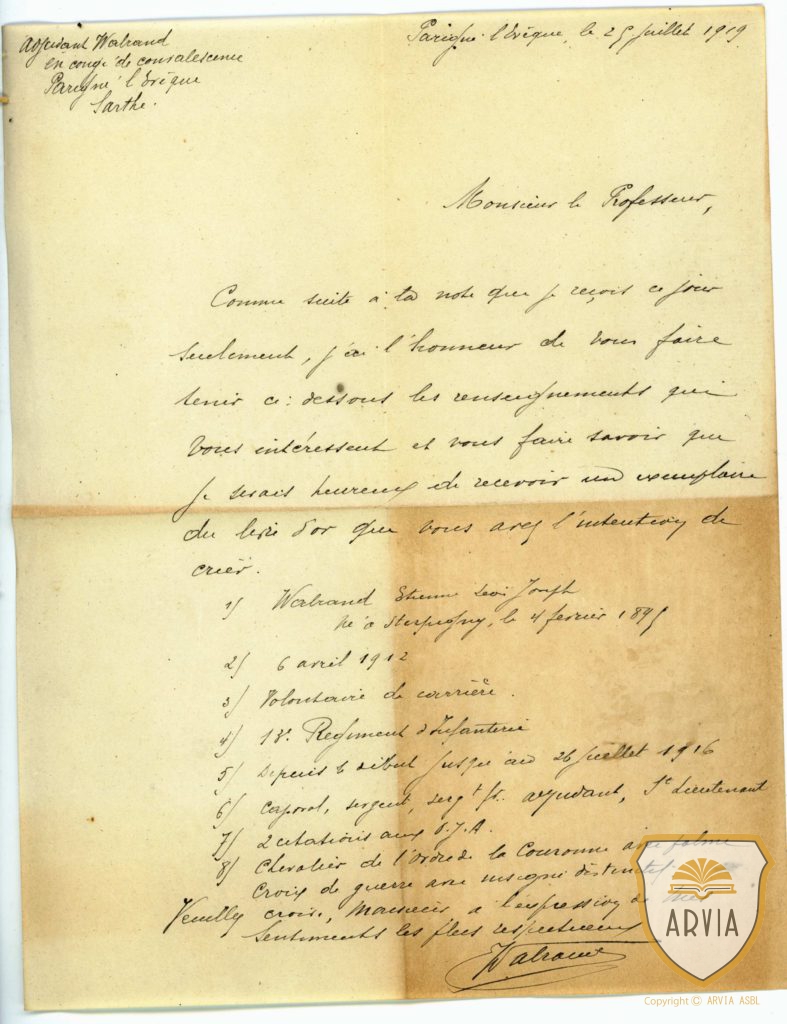 Adjudant Walrand
en congé de convalescence
Parigné l'Evêque
Sarthe.
Parigné l'Evêque, le 25 juillet 1919
Monsieur le Professeur,
Comme suite à la note que je reçois ce jour
seulement, j'ai l'honneur de vous faire
tenir ci-dessous les renseignements qui
vous intéressent et vous faire savoir que
je serais heureux de recevoir un exemplaire
du livre d'or que vous avez l'intention de
créer.
1) Walrand Etienne Joseph
né à Sterpigny, le 4 février 1895
2) 6 avril 1912
3) Volontaire de carrière.
4) 13e Régiment d'Infanterie
5) Depuis le début jusqu'au 26 juillet 1916
6) Caporal, sergent, sergt fr. adjudant, St Lieutenant
7) 2 citations aux O.J.A.
8) Chevalier de l'Ordre de la Couronne avec palme
Croix de guerre avec insigne
Veuillez croire, Monsieur, à l'expression de mes
sentiments les plus respectueux
Walrand
ARVIA
Copyright © ARVIA ASBL